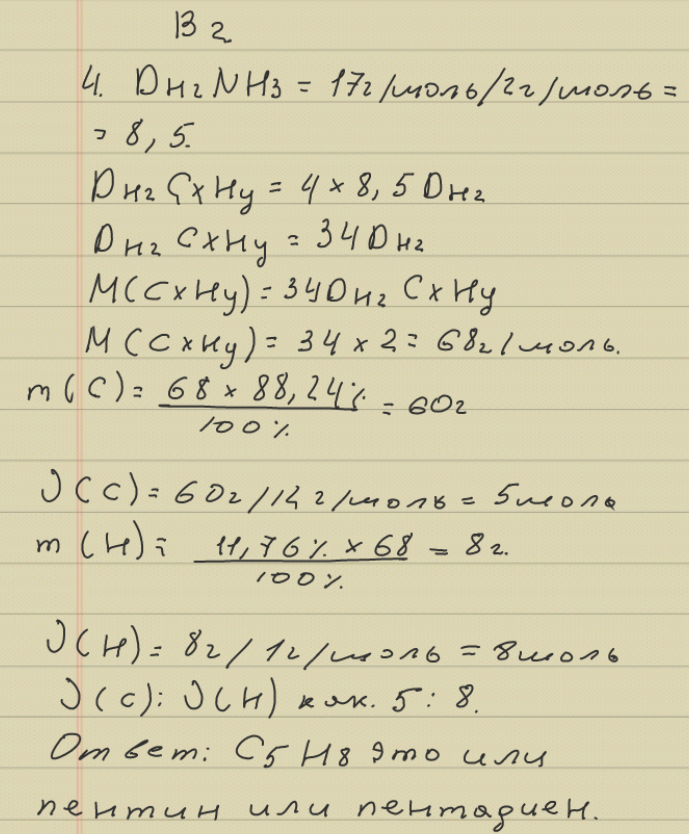 В 2
4. DH2 NH3 = 17г/моль/2г/моль =
= 8,5.
DH2 CxHy = 4 × 8,5 DH2
DH2 CxHy = 34DH2
M(CxHy) = 34DH2 CxHy
M(CxHy) = 34 × 2 = 68г/моль.
m(C) = 68 × 88,24% / 100% = 60г
ν(C) = 60г/12г/моль = 5моль
m(H) = 11,76% × 68 / 100% = 8г.
ν(H) = 8г/1г/моль = 8моль
ν(C) : ν(H) как. 5 : 8.
Ответ: C5H8 это или
пентин или пентадиен.